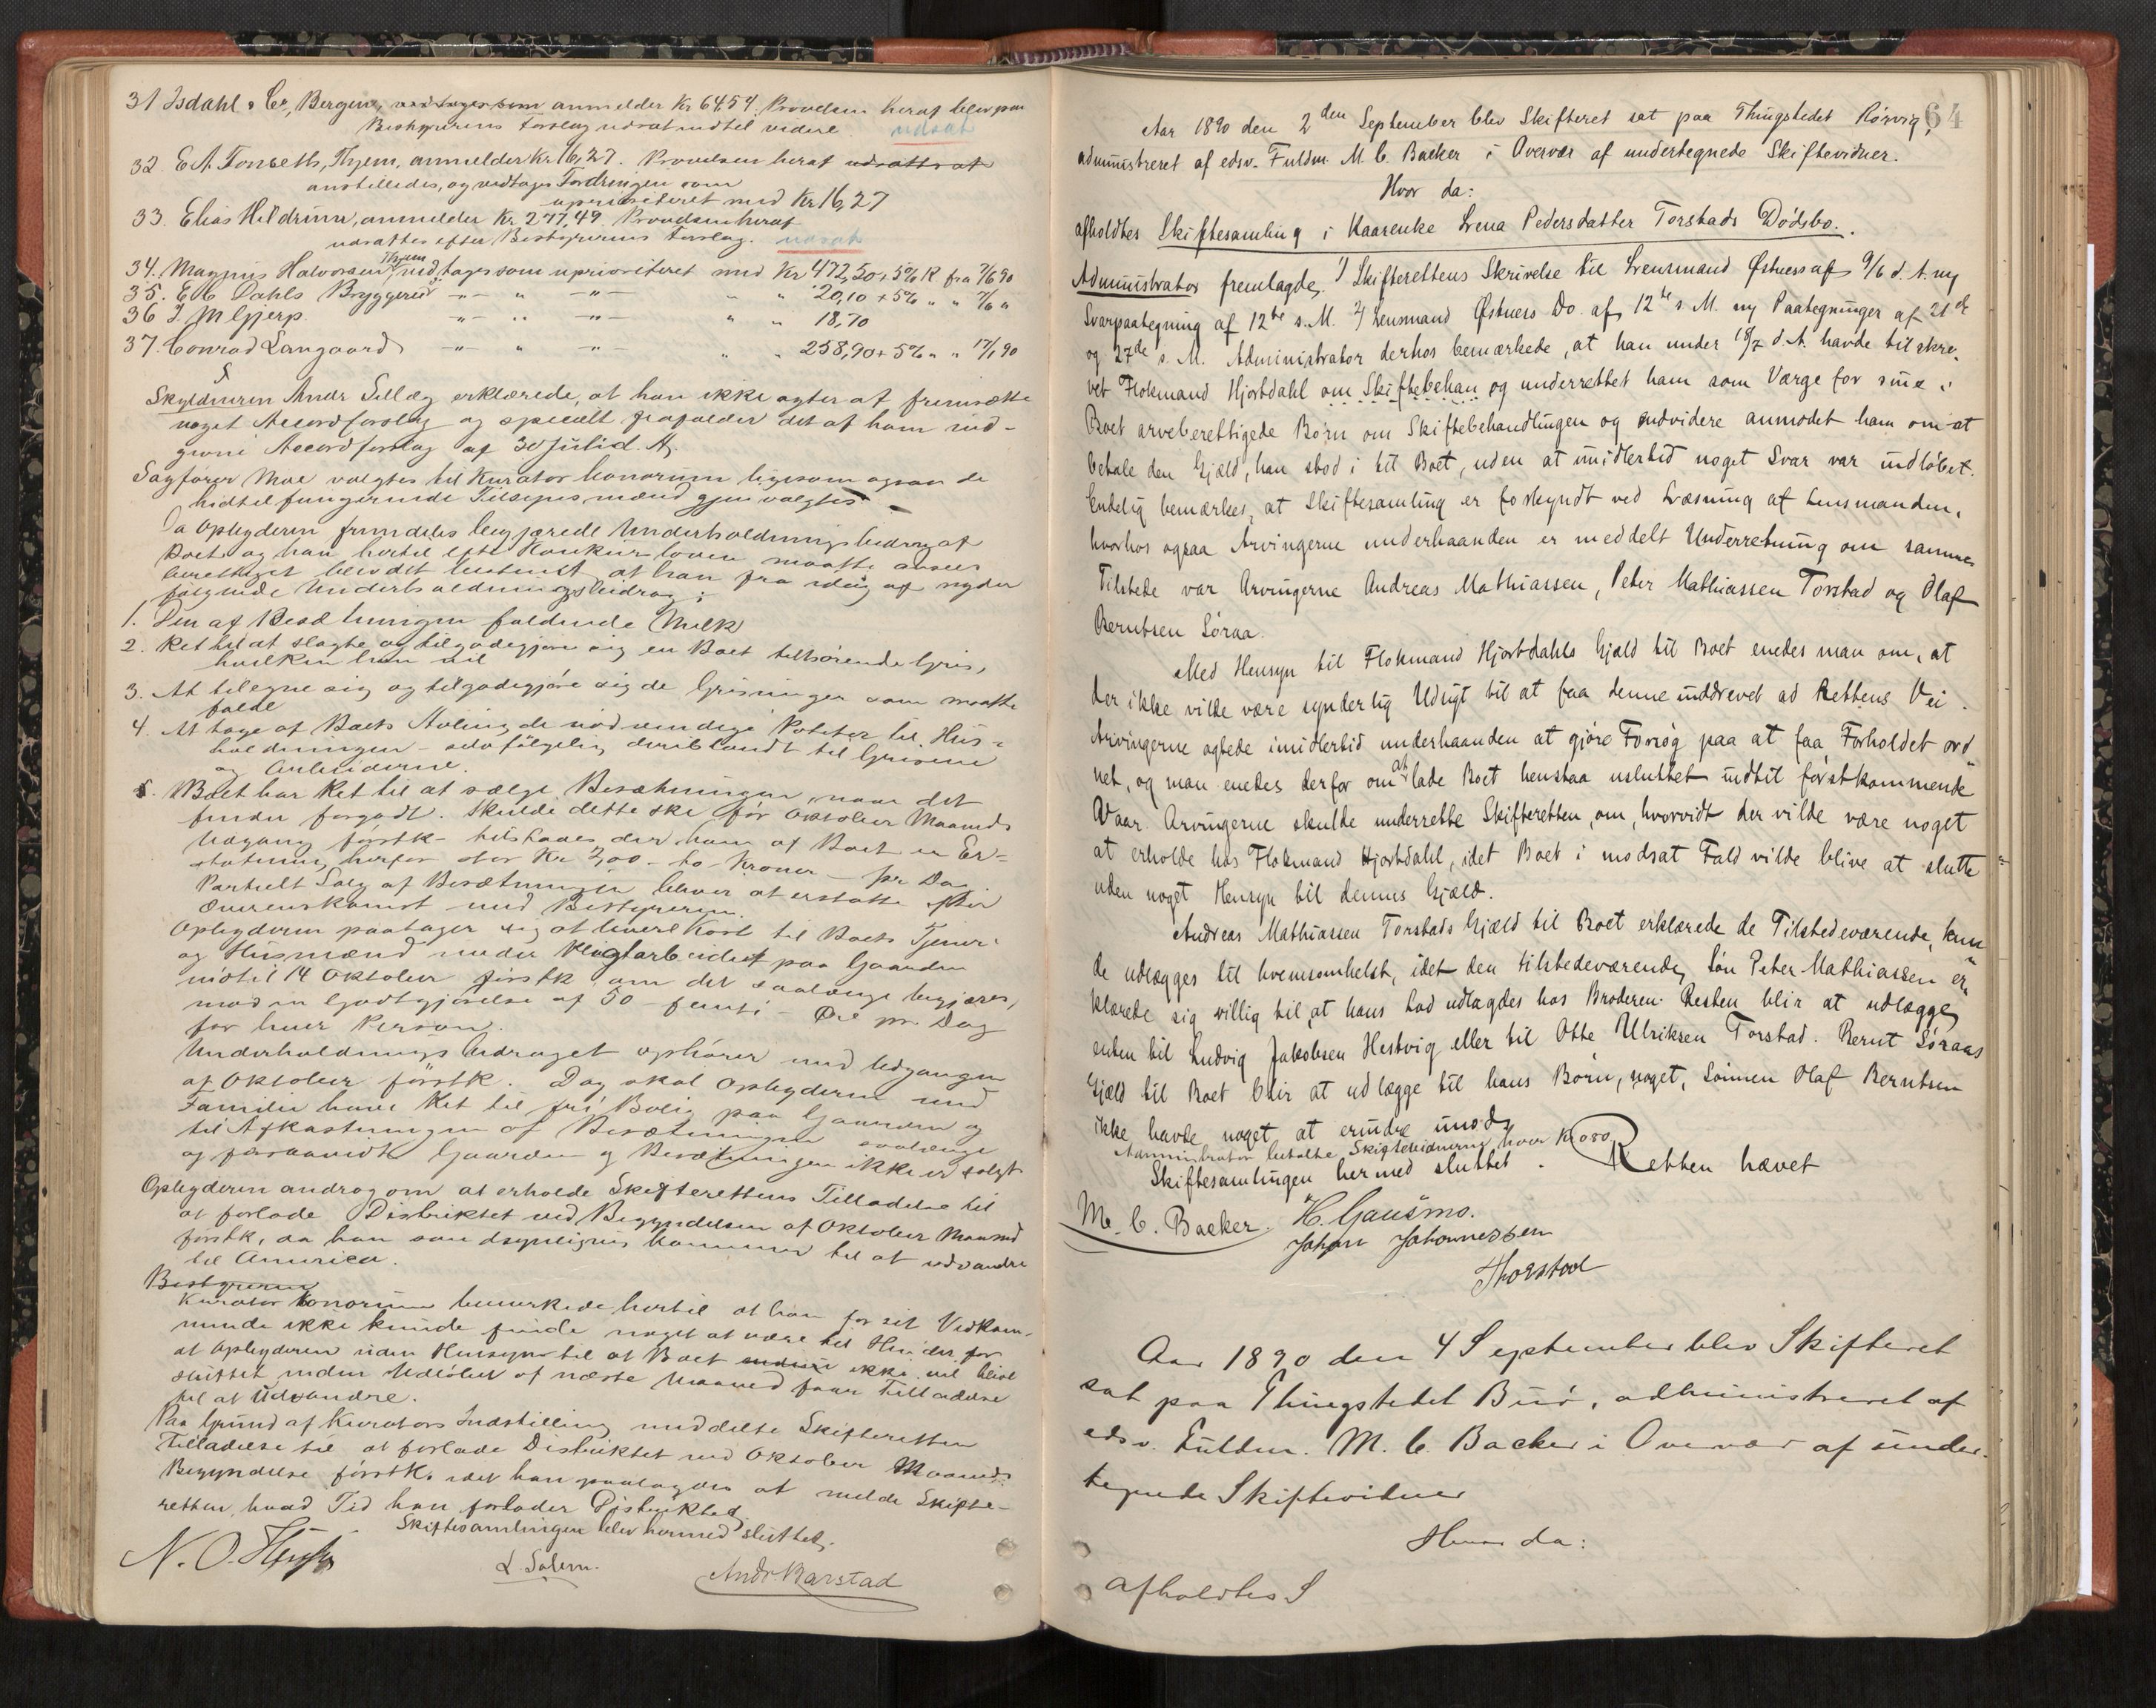 31 Isdahl & Co, Bergen, vedtages som anmelder Kr 64,54. Prøvelsen heraf blev paa
Bestyrerens Forslag udsat indtil videre. udsat
32. E A Tonseth, Thjem, anmelder Kr 16,27. Prøvelsen heraf udsattes at
anstilledes, og vedtages Fordringen som
uprioriteret med Kr 16,27
33. Elias Hildrum, anmelder Kr 277,49. Prøvelsen heraf
udsattes efter Bestyrerens Forslag. udsat
34. Magnus Halvorsen Thjem vedtages som uprioriteret med Kr 472,50 + 5% R fra 7/6 90
35. E C Dahls Bryggeri -"- " -"- " " 20,10 + 5% " " 7/6 "
36 J. M Gjerp. -"- " -"- " " 18,70
37. Conrad Langaard -"- " -"- " " 258,90 + 5% " " 17/1 90
§
Skyldneren Andr Sellæg erklærede, at han ikke agter at fremsætte
noget Accordforslag og specielt frafalder det af ham ind-
givne Accordforslag af 30 Juli d. A.
Sagfører Moe valgtes til Kurator bonorum ligesom ogsaa de
hidtil fungerende Tilsynsmænd gjenvalgtes. —
Da Opbyderen fremdeles begjærede Underholdningsbidrag af
Boet og han hertil efter Konkursloven maatte ansees
berettiget blev det bestemt at han fra idag af nyder
følgende Underholdningsbidrag:
1. Den af Besætningen faldende Melk
2. Ret til at slagte og tilgodegjøre sig en Boet tilhørende Gris,
hvilken han vil
3. At tilegne sig og tilgodegjøre sig de Grisunger som maatte
falde
4. At tage af Boets Avling de nødvendige Poteter til Hus-
holdningen – selvfølgelig deriblandt til Grisene
og Arbeiderne.
5. Boet har Ret til at sælge Besætningen, naar det
finder forgodt. Skulde dette ske før Oktober Maaneds
Udgang førstk. tilstaaes der ham af Boet en Er-
statning herfor stor Kr 2,00 – to Kroner – pr Dag.
Partielt Salg af Besætningen bliver at erstatte efter
Overenskomst med Bestyreren.
Opbyderen paatager sig at levere Kost til Boets Tjenere
og Husmænd under Pligtarbeidet paa Gaarden
indtil 14 Oktober førstk, om det saalænge begjæres,
mod en Godtgjørelse af 50 – femti – Øre pr. Dag
for hver Person.
Underholdningsbidraget ophører med Udgangen
af Oktober førstk. Dog skal Opbyderen med
Familie have Ret til fri Bolig paa Gaarden og
til Afkastningen af Besætningen saalænge
og forsaavidt Gaarden og Besætningen ikke er solgt
Opbyderen androg om at erholde Skifterettens Tilladelse til
at forlade Distriktet ved Begyndelsen af Oktober Maaned
førstk, da han sandsynligvis kommer til at udvandre
til America.
Bestyreren
Kurator bonorum bemerkede hertil at han for sit Vedkom-
mende ikke kunde finde noget at være til Hinder for
at Opbyderen uden Hensyn til at Boet endnu ikke vil blive
sluttet inden Udløbet af næste Maaned faar Tilladelse
til at Udvandre.
Paa Grund af Kurators Indstilling meddelte Skifteretten
Tilladelse til at forlade Distriktet ved Oktober Maaneds
Begyndelse førstk. idet han paalagdes at melde Skifte-
retten, hvad Tid han forlader Distriktet.
Skiftesamlingen blev hermed sluttet.
L. Solem. Andr Barstad
64
Aar 1890 den 2den September blev Skifteret sat paa Thingstedet Rørvig,
administreret af edsv. Fuldm. M. C. Backer i Overvær af undertegnede Skiftevidner.
Hvor da:
afholdtes Skiftesamling i Kaarenke Lrena Pedersdatter Torstads Dødsbo.
Administrator fremlagde, 1/ Skifterettens Skrivelse til Lensmand Østnes af 9/6 d. A. m
Svarpaategning af 12te s. M. 2/ Lensmand Østnes Do. af 12te s. M. m Paategninger af 21de
og 27de s. M. Administrator derhos bemærkede, at han under 18/7 d. A. havde tilskre-
vet Flokmand Hjortdahl om Skiftebehan og underrettet ham som Værge for sine i
Boet arveberettigede Børn om Skiftebehandlingen og endvidere anmodet ham om at
betale den Gjæld, han stod i til Boet, uden at imidlertid noget Svar var indløbet.
Endelig bemærkes, at Skiftesamling er forkyndt ved Læsning af Lensmanden,
hvorhos ogsaa Arvingerne underhaanden er meddelt Underretning om samme
Tilstede var Arvingerne Andreas Mathiassen, Peter Mathiassen Torstad og Olaf
Berntsen Søraa.
Med Hensyn til Flokmand Hjortdahls Gjæld til Boet enedes man om, at
der ikke vilde være synderlig Udsigt til at faa denne inddrevet ad Rettens Vei.
Arvingerne agtede imidlertid underhaanden at gjøre Forsøg paa at faa Forholdet ord-
net, og man enedes derfor om at lade Boet henstaa usluttet indtil førstkommende
Vaar. Arvingerne skulde underrette Skifteretten, om, hvorvidt der vilde være noget
at erholde hos Flokmand Hjortdahl, idet Boet i modsat Fald vilde blive at slutte
uden noget Hensyn til dennes Gjæld.
Andreas Mathiassen Torstads Gjæld til Boet erklærede de Tilstedeværende, kun-
de udlægges til hvemsomhelst, idet den tilstedeværende Søn Peter Mathiassen er-
klærede sig villig til, at hans Lod udlagdes hos Broderen. Resten blir at udlægge
enten til Ludvig Jakobsen Hestvig eller til Otte Ulriksen Torstad. Bernt Søraas
Gjæld til Boet blir at udlægge til hans Børn, noget, Sønnen Olaf Berntsen
ikke havde noget at erindre imod.
Administrator betalte Skiftevidnerne hver Kr 0.80
Skiftesamlingen hermed sluttet. Retten hævet
M. C. Backer. H. Gansmo.
Johan Johannessen
Thorstad
Aar 1890 den 4 September blev Skifteret
sat paa Thingstedet Buø, administreret af
edsv. Fuldm. M. C. Backer i Overvær af under-
tegnede Skiftevidner
Hvor da:
afholdtes S